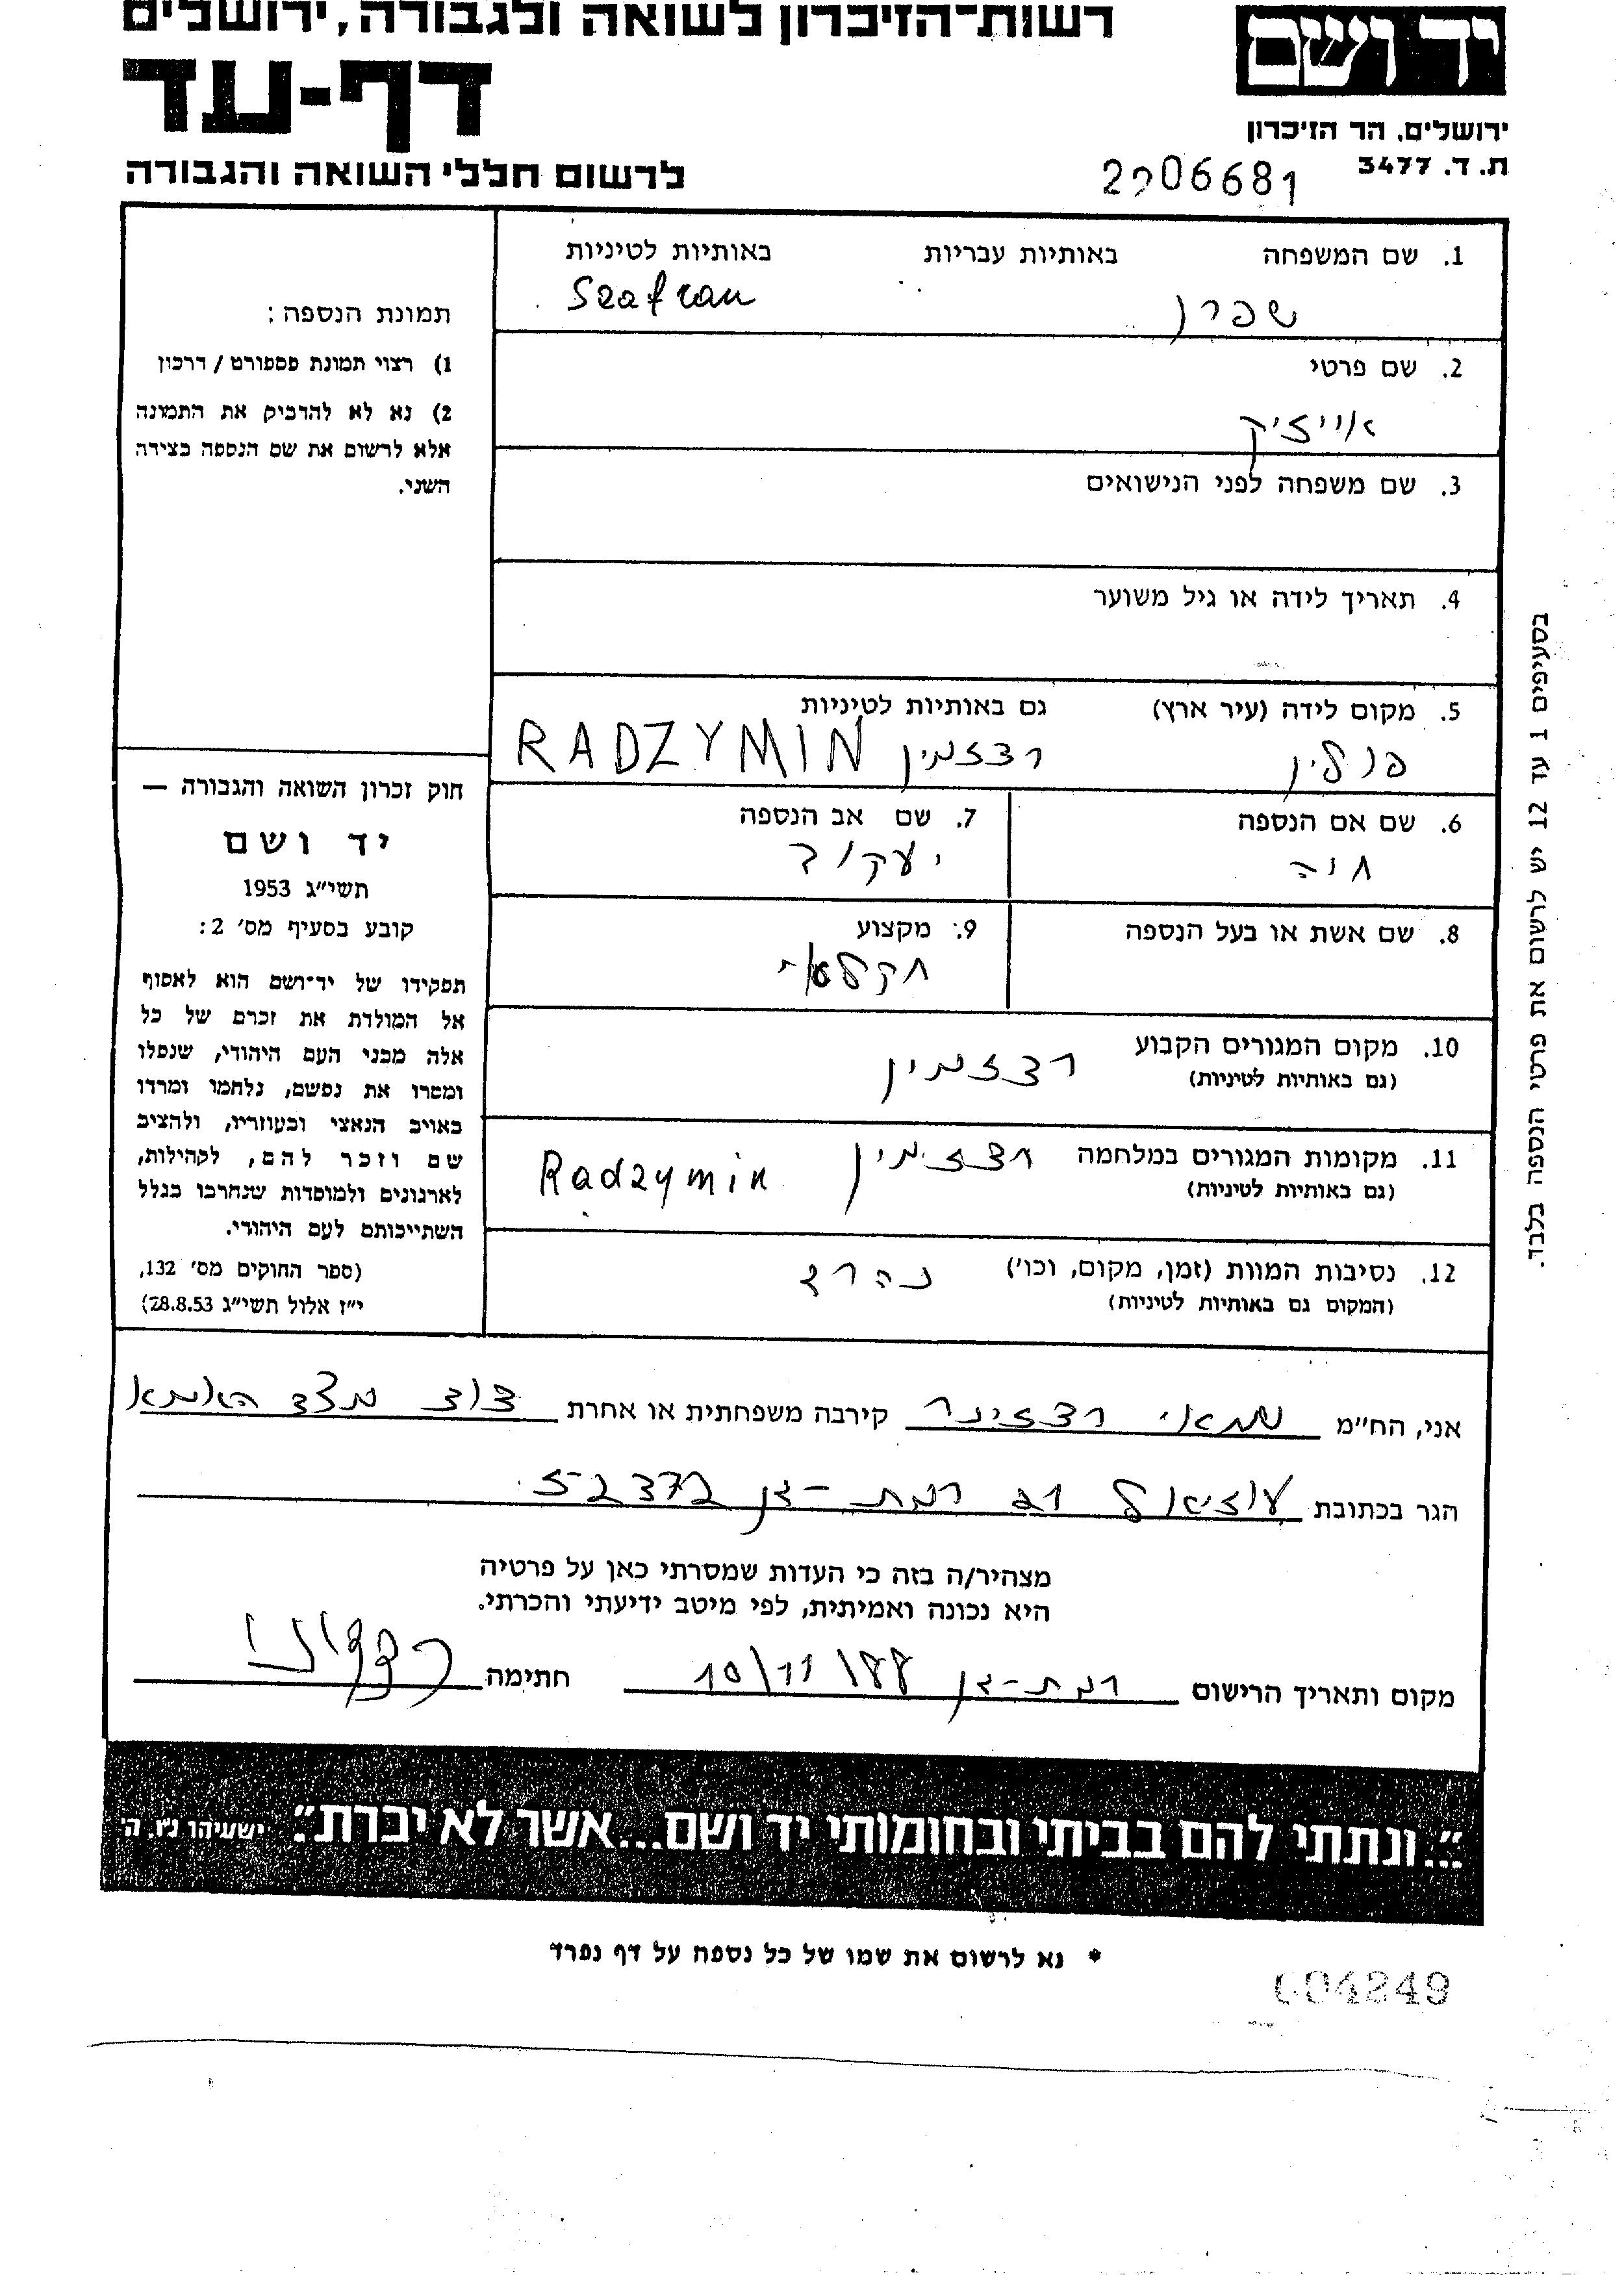 רשות-הזיכרון לשואה ולגבורה, ירושלים
יד ושם
דף-עד
ירושלים, הר הזיכרון
ת. ד. 3477
לרשום חללי השואה והגבורה
2006681
1. שם המשפחה באותיות עבריות באותיות לטיניות
שפרן Szafran
2. שם פרטי
אייזיק
3. שם משפחה לפני הנישואים
4. תאריך לידה או גיל משוער
5. מקום לידה (עיר ארץ) גם באותיות לטיניות
פולין רדזמין RADZYMIN
6. שם אם הנספה
חוה
7. שם אב הנספה
יעקוב
8. שם אשת או בעל הנספה
9. מקצוע
חקלאי
10. מקום המגורים הקבוע רדזמין
(גם באותיות לטיניות)
11. מקומות המגורים במלחמה רדזמין Radzymin
(גם באותיות לטיניות)
12. נסיבות המוות (זמן, מקום, וכו') נהרג
(המקום גם באותיות לטיניות)
תמונת הנספה:
1) רצוי תמונת פספורט / דרכון
2) נא לא להדביק את התמונה
אלא לרשום את שם הנספה בצידה
השני.
חוק זכרון השואה והגבורה —
יד ושם
תשי"ג 1953
קובע בסעיף מס' 2:
תפקידו של יד-ושם הוא לאסוף
אל המולדת את זכרם של כל
אלה מבני העם היהודי, שנפלו
ומסרו את נפשם, נלחמו ומרדו
באויב הנאצי ובעוזריו, ולהציב
שם וזכר להם, לקהילות,
לארגונים ולמוסדות שנחרבו בגלל
השתייכותם לעם היהודי.
(ספר החוקים מס' 132,
י"ז אלול תשי"ג 28.8.53)
בסעיפים 1 עד 12 יש לרשום את פרטי הנספה בלבד.
אני, הח"מ שמאי רדזינר קירבה משפחתית או אחרת דוד מצד האמא
הגר בכתובת עוזיאל רמת-גן 52372
מצהיר/ה בזה כי העדות שמסרתי כאן על פרטיה
היא נכונה ואמיתית, לפי מיטב ידיעתי והכרתי.
מקום ותאריך הרישום רמת-גן 10/11/88 חתימה
"...ונתתי להם בביתי ובחומותי יד ושם...אשר לא יכרת". ישעיהו נ"ו, ה'
* נא לרשום את שמו של כל נספה על דף נפרד
004249